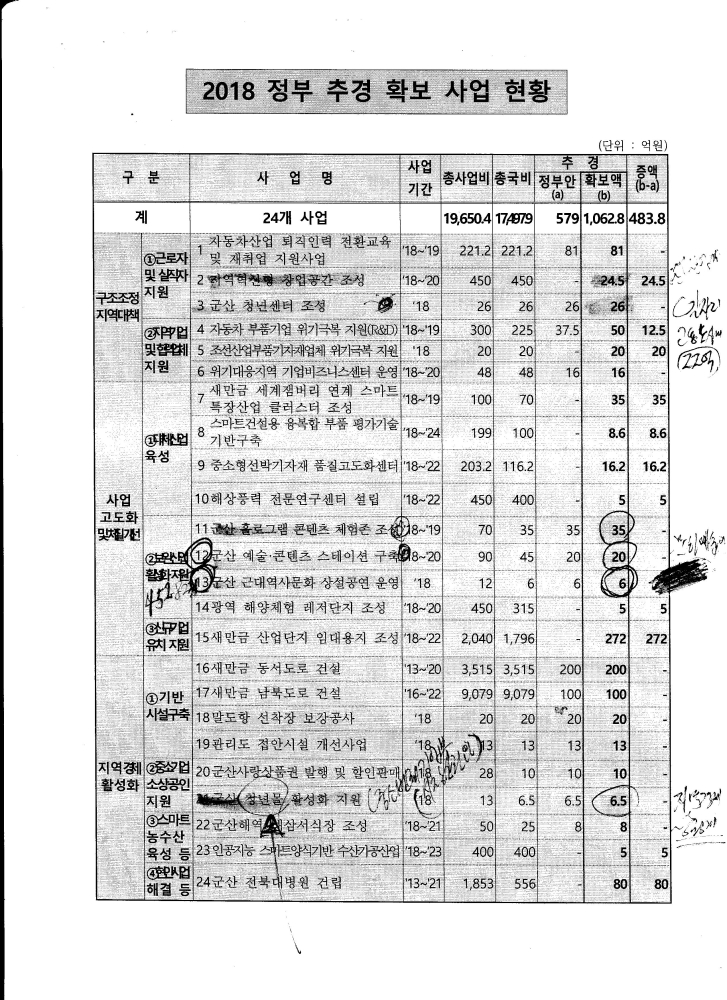 2018 정부 추경 확보 사업 현황
(단위 : 억원)
구 분 사 업 명 사업기간 총사업비 총국비 추 경 정부안(a) 확보액(b) 증액(b-a)
계 24개 사업 19,650.4 17,497.9 579 1,062.8 483.8
구조조정 지역대책
①근로자 및 실직자 지원
1 자동차산업 퇴직인력 전환교육 및 재취업 지원사업 '18~'19 221.2 221.2 81 81 -
2 창업공간 조성 '18~'20 450 450 - 24.5 24.5
3 군산 청년센터 조성 '18 26 26 26 26 -
②지역기업 및 협력업체 지원
4 자동차 부품기업 위기극복 지원(R&D) '18~'19 300 225 37.5 50 12.5
5 조선산업부품기자재업체 위기극복 지원 '18 20 20 - 20 20
6 위기대응지역 기업비즈니스센터 운영 '18~'20 48 48 16 16 -
사업 고도화 및 체질개선
①대체산업 육성
7 새만금 세계잼버리 연계 스마트 특장산업 클러스터 조성 '18~'19 100 70 - 35 35
8 스마트건설용 융복합 부품 평가기술 기반구축 '18~'24 199 100 - 8.6 8.6
9 중소형선박기자재 품질고도화센터 '18~'22 203.2 116.2 - 16.2 16.2
10 해상풍력 전문연구센터 설립 '18~'22 450 400 - 5 5
②보완산업 활성화 지원
11 군산 홀로그램 콘텐츠 체험존 조성 '18~'19 70 35 35 35 -
12 군산 예술·콘텐츠 스테이션 구축 '18~'20 90 45 20 20 -
13 군산 근대역사문화 상설공연 운영 '18 12 6 6 6 -
14 광역 해양체험 레저단지 조성 '18~'20 450 315 - 5 5
③신규기업 유치 지원
15 새만금 산업단지 임대용지 조성 '18~'22 2,040 1,796 - 272 272
지역경제 활성화
①기반 시설구축
16 새만금 동서도로 건설 '13~'20 3,515 3,515 200 200 -
17 새만금 남북도로 건설 '16~'22 9,079 9,079 100 100 -
18 말도항 선착장 보강공사 '18 20 20 20 20 -
19 관리도 접안시설 개선사업 '18 13 13 13 13 -
②중소기업 소상공인 지원
20 군산사랑상품권 발행 및 할인판매 '18 28 10 10 10 -
청년몰 활성화 지원 '18 13 6.5 6.5 6.5 -
③스마트 농수산 육성 등
22 군산해역 해삼서식장 조성 '18~'21 50 25 8 8 -
23 인공지능 스마트양식기반 수산가공산업 '18~'23 400 400 - 5 5
④현안사업 해결 등
24 군산 전북대병원 건립 '13~'21 1,853 556 - 80 80
(22억)